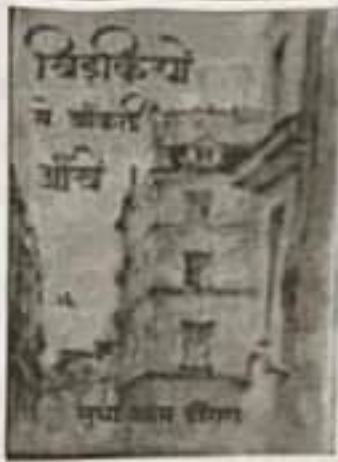 खिड़कियों
से झाँकती
आँखें ।
सुधा ओम ढींगरा